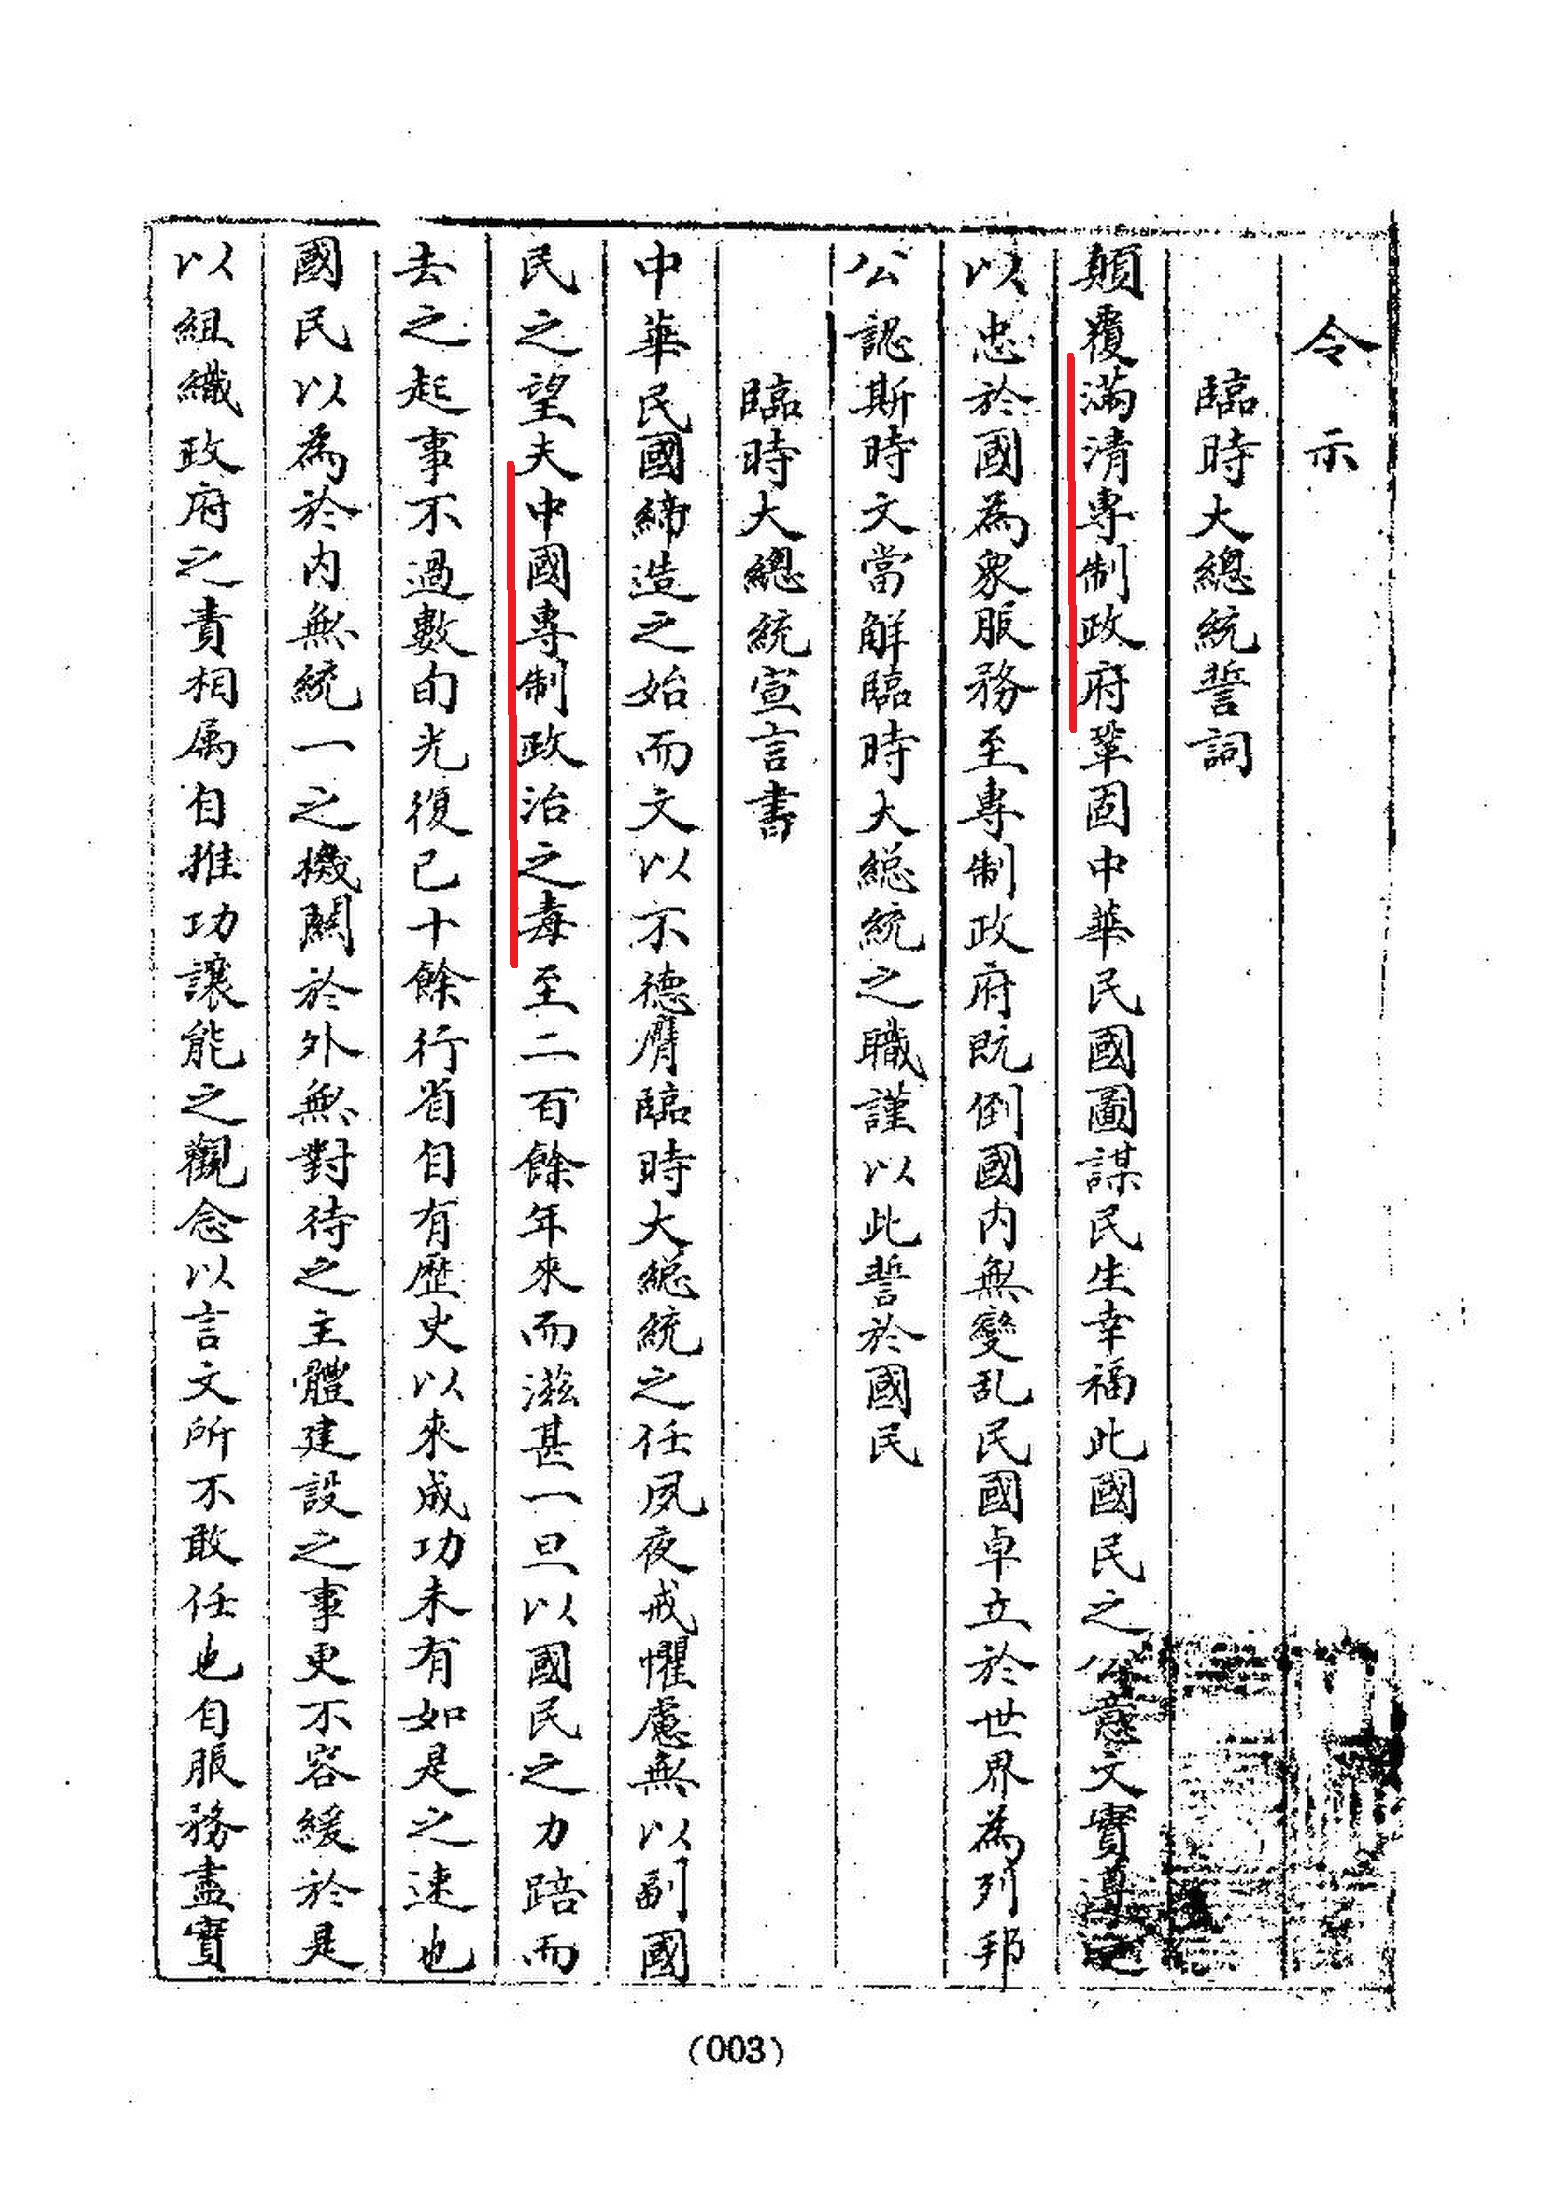 令示
臨時大總統誓詞
顛覆滿清專制政府鞏固中華民國圖謀民生幸福此國民之公意文實遵之
以忠於國為眾服務至專制政府既倒國內無變乱民國卓立於世界為列邦
公認斯時文當解臨時大總統之職謹以此誓於國民
臨時大總統宣言書
中華民國締造之始而文以不德膺臨時大總統之任夙夜戒懼慮無以副國
民之望夫中國專制政治之毒至二百餘年來而滋甚一旦以國民之力踣而
去之起事不過數旬光復已十餘行省自有歷史以來成功未有如是之速也
國民以為於內無統一之機關於外無對待之主體建設之事更不容緩於是
以組織政府之責相属自推功讓能之觀念以言文所不敢任也自服務盡實
(003)